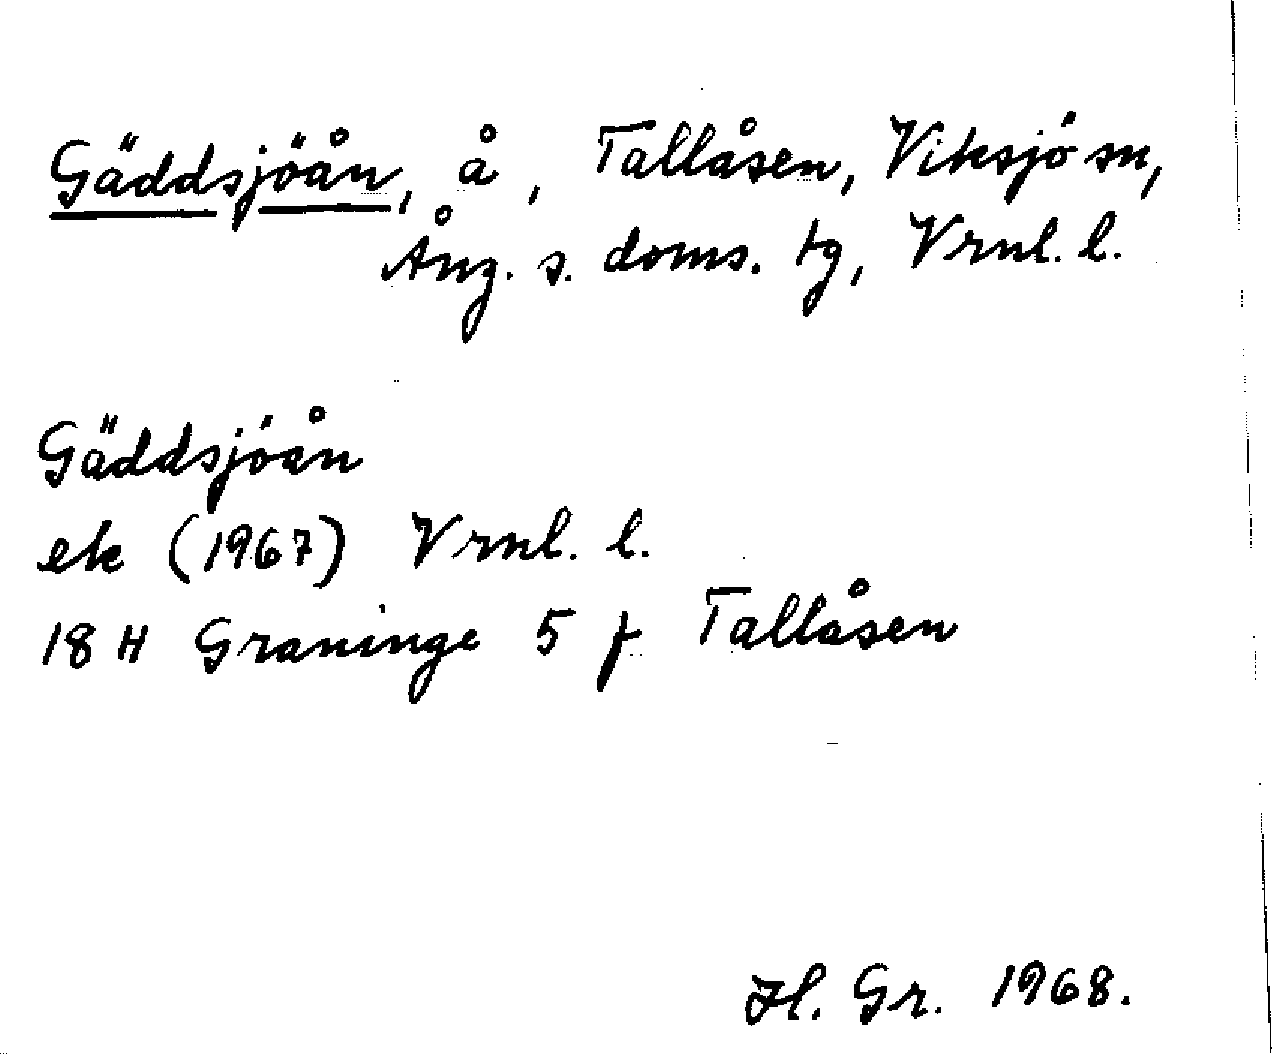 Gäddsjöån, å, Tallåsen, Viksjö sn,
Ång. s. doms. tg, Vrnl. l.
Gäddsjöån
ek (1967) Vrnl. l.
18 H Graninge 5 f Tallåsen
Hl. Gr. 1968.